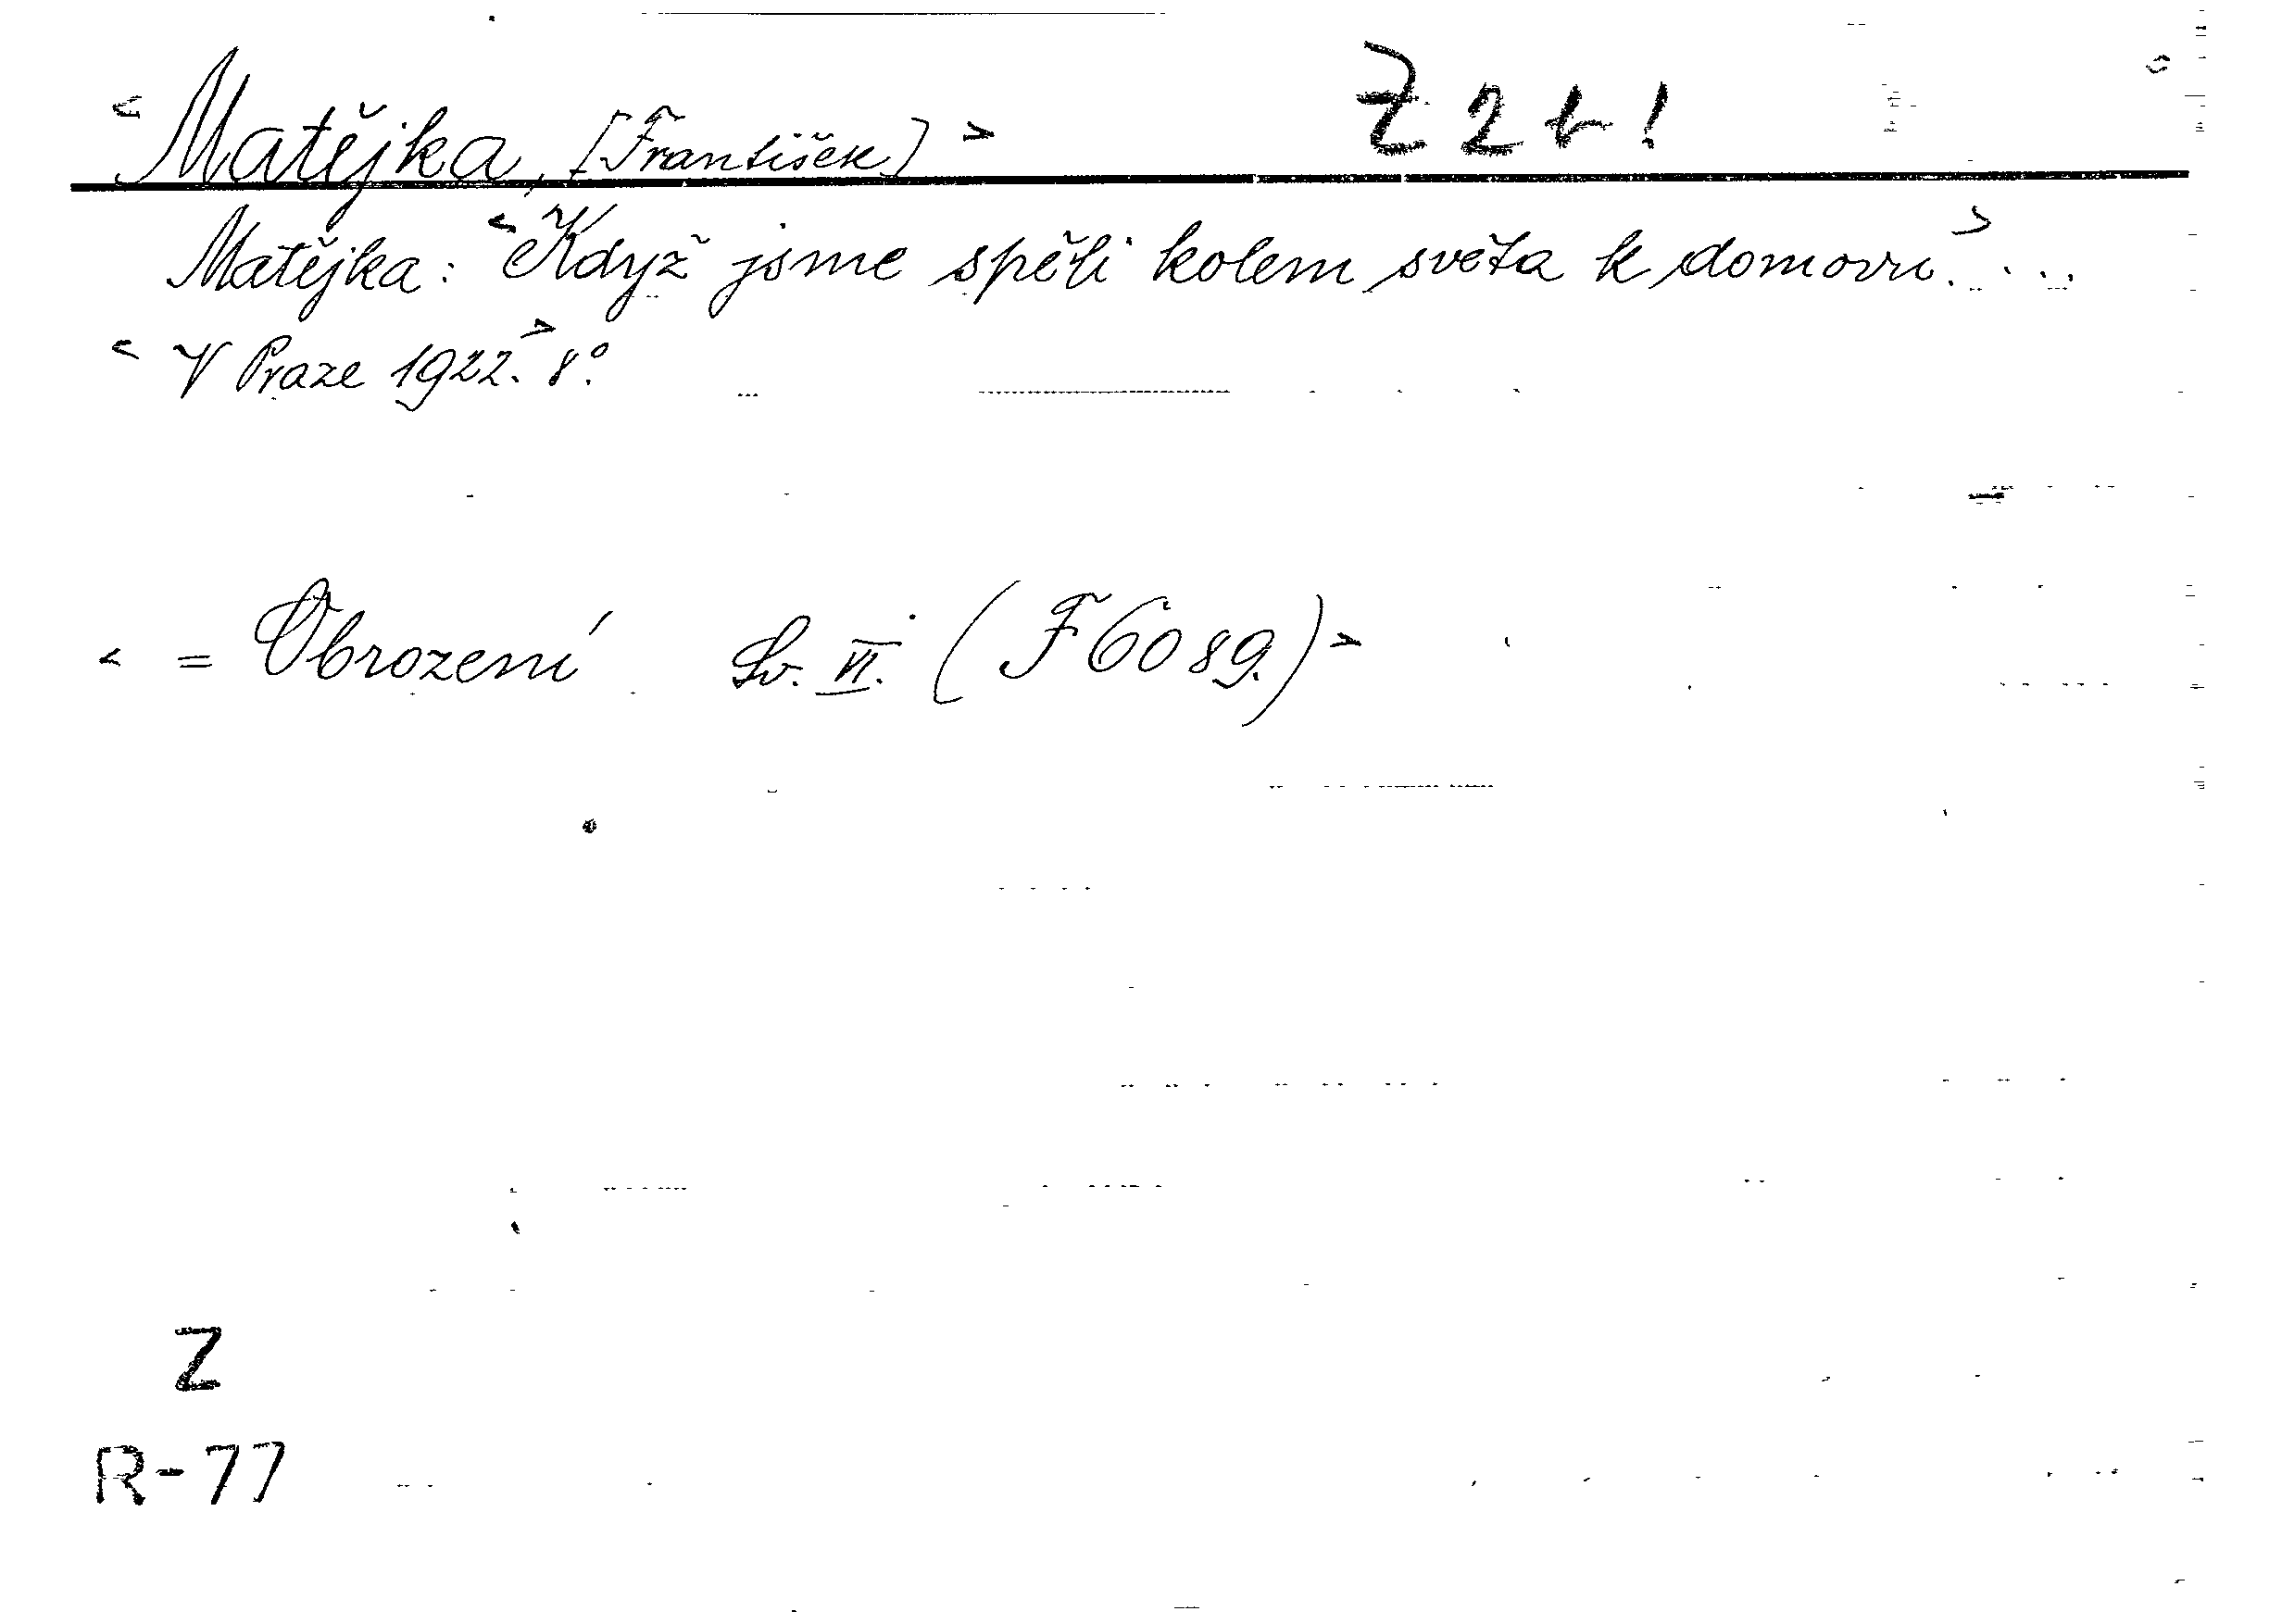 <Matějka, [František]> Z 2 b!
Matějka: <Když jsme spěli kolem světa k domovu.> ...
<V Praze 1922.> 8°.
<= Obrození Sv. VI. (F 6089.)>
Z
R-77